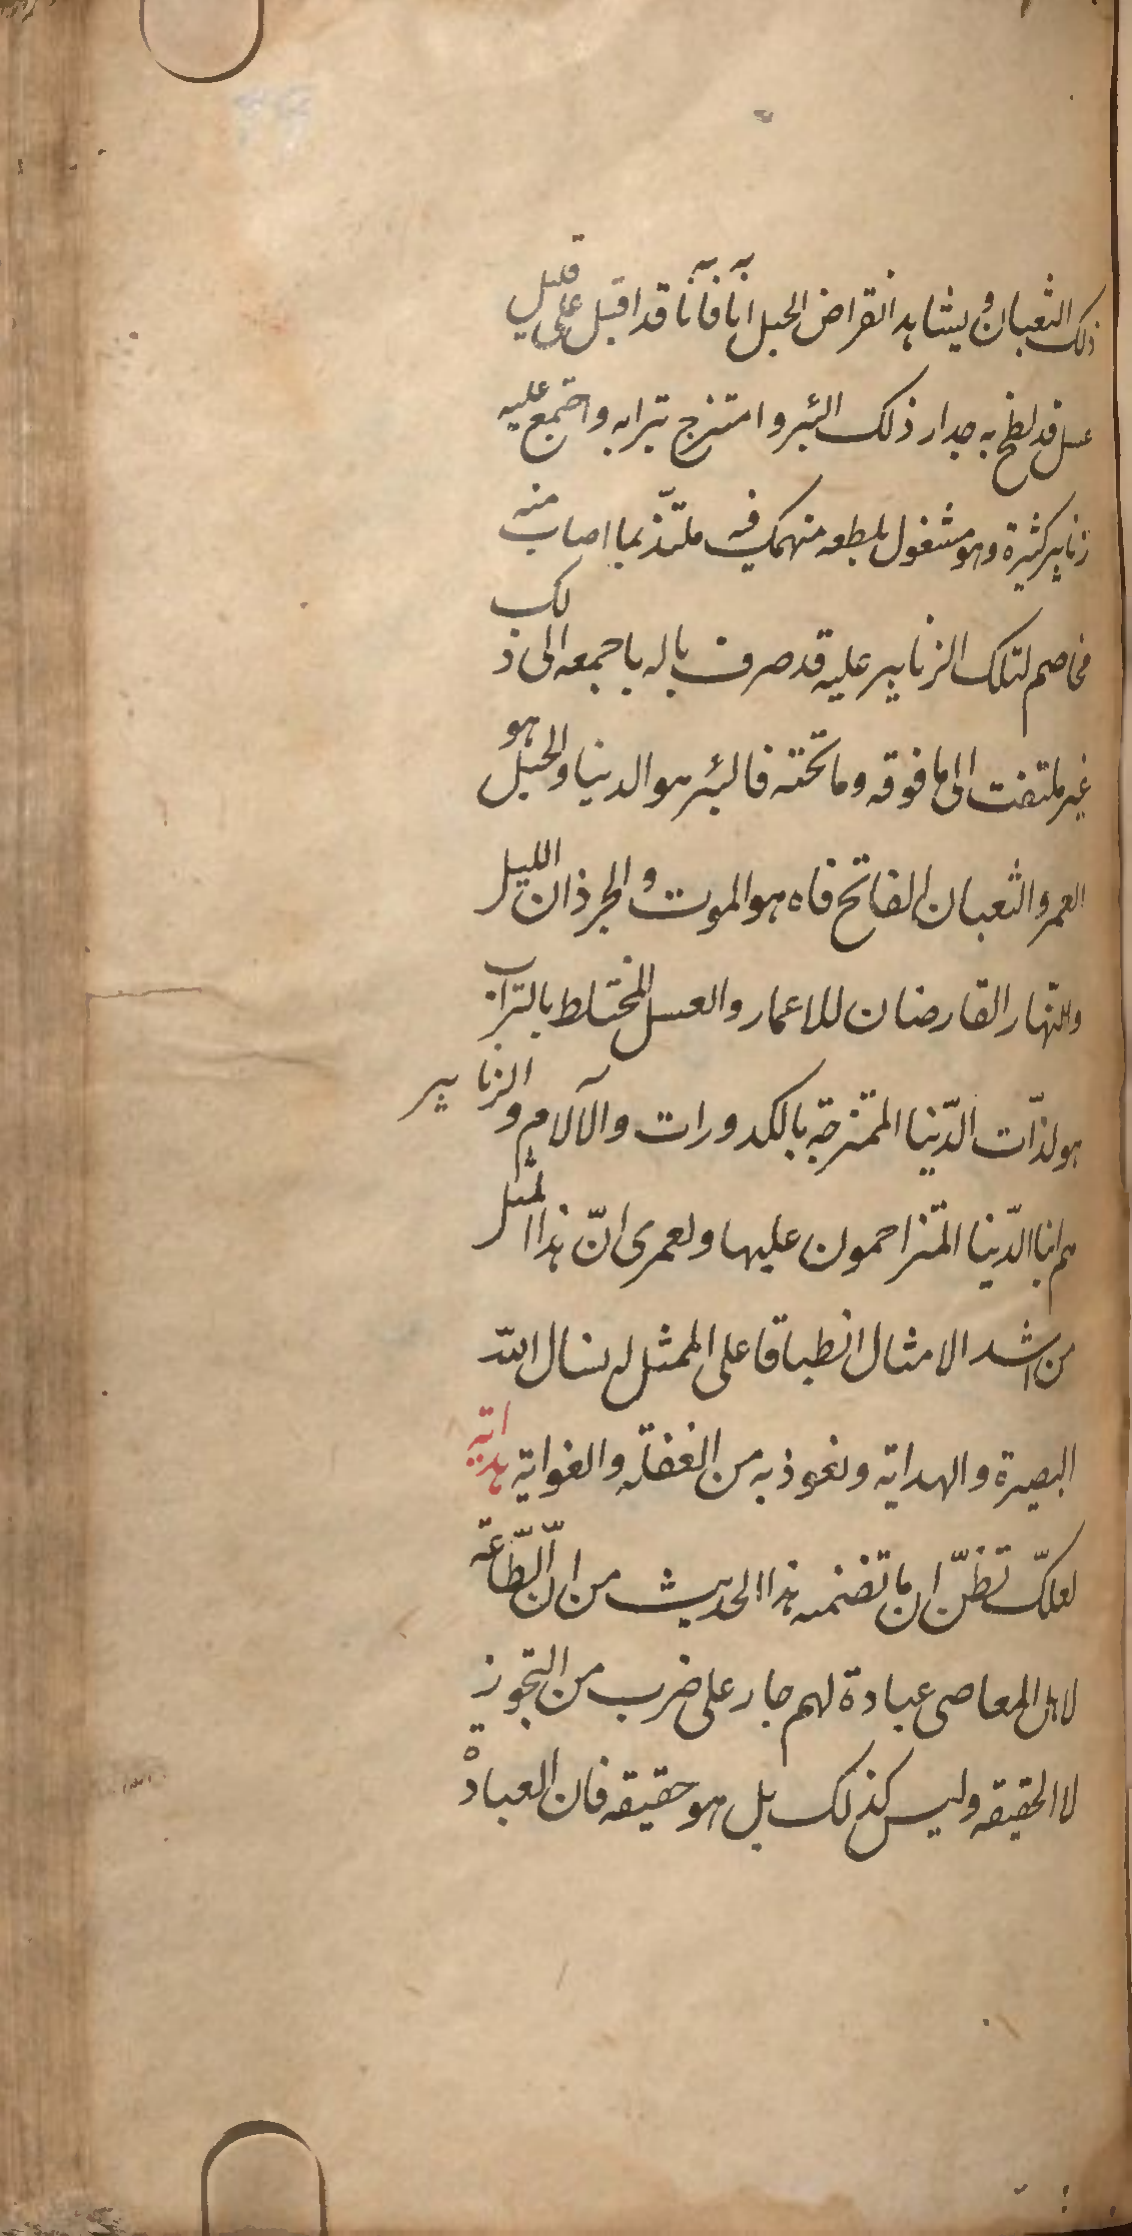 ذلك الثعبان ويشاهد انقراض الحبل انا فانا قد اقبل على قليل
عسل قد لطخ به جدار ذلك البئر وامتزج بترابه واجتمع عليه
زنابير كثيرة وهو مشغول بلطعه منهمك فيه ملتذ بما اصاب منه
مخاصم لتلك الزنابير عليه قد صرف باله باجمعه الى ذلك
غير ملتفت الى ما فوقه وما تحته فالبئر هو الدنيا والحبل هو
العمر والثعبان الفاتح فاه هو الموت والجرذان الليل
والنهار القارضان للاعمار والعسل المختلط بالتراب
هو لذّات الدّنيا الممتزجة بالكدورات والآلام والزنابير
هم ابنا الدّنيا المتزاحمون عليها ولعمرى انّ هذا المثل
من اشد الامثال انطباقا على الممثل له نسال الله
البصيرة والهداية ونعوذ به من الغفلة والغواية هداية
لعلّك تظنّ ان ما تضمنه هذا الحديث من انّ الطّاعة
لاهل المعاصى عبادة لهم جار على ضرب من التجوز
لا الحقيقه وليس كذلك بل هو حقيقه فان العبادة